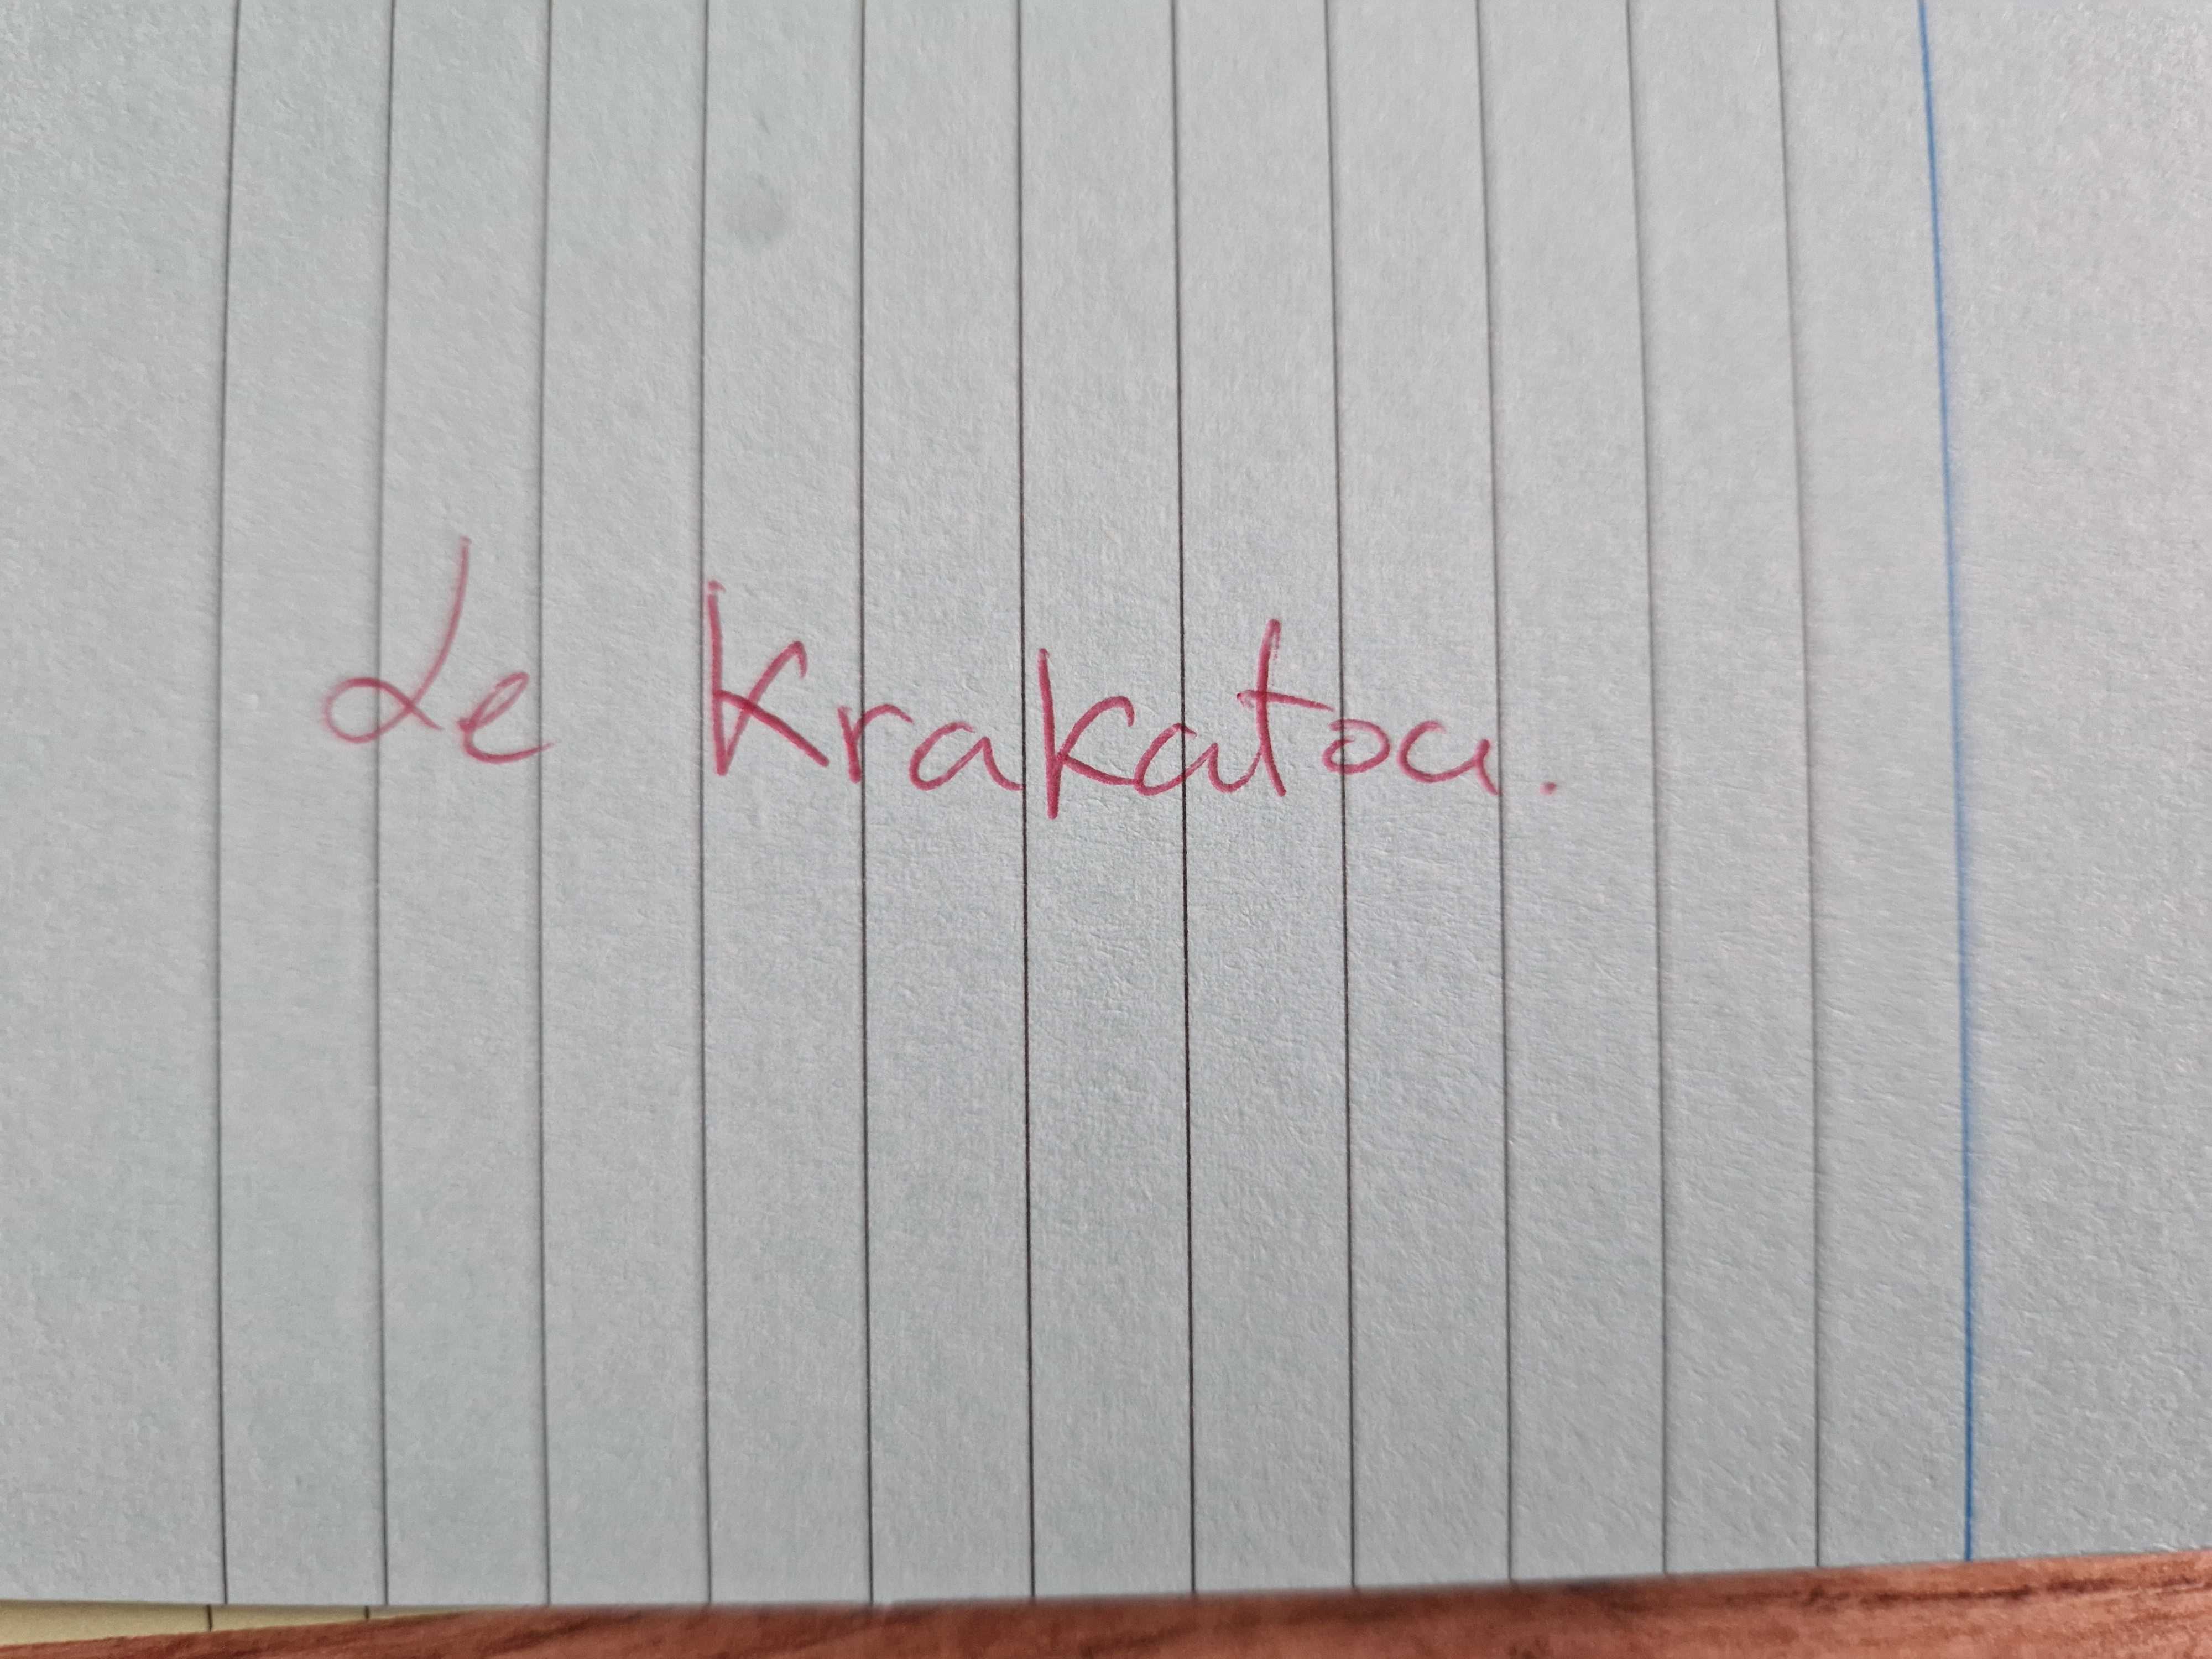 Le Krakatoa.